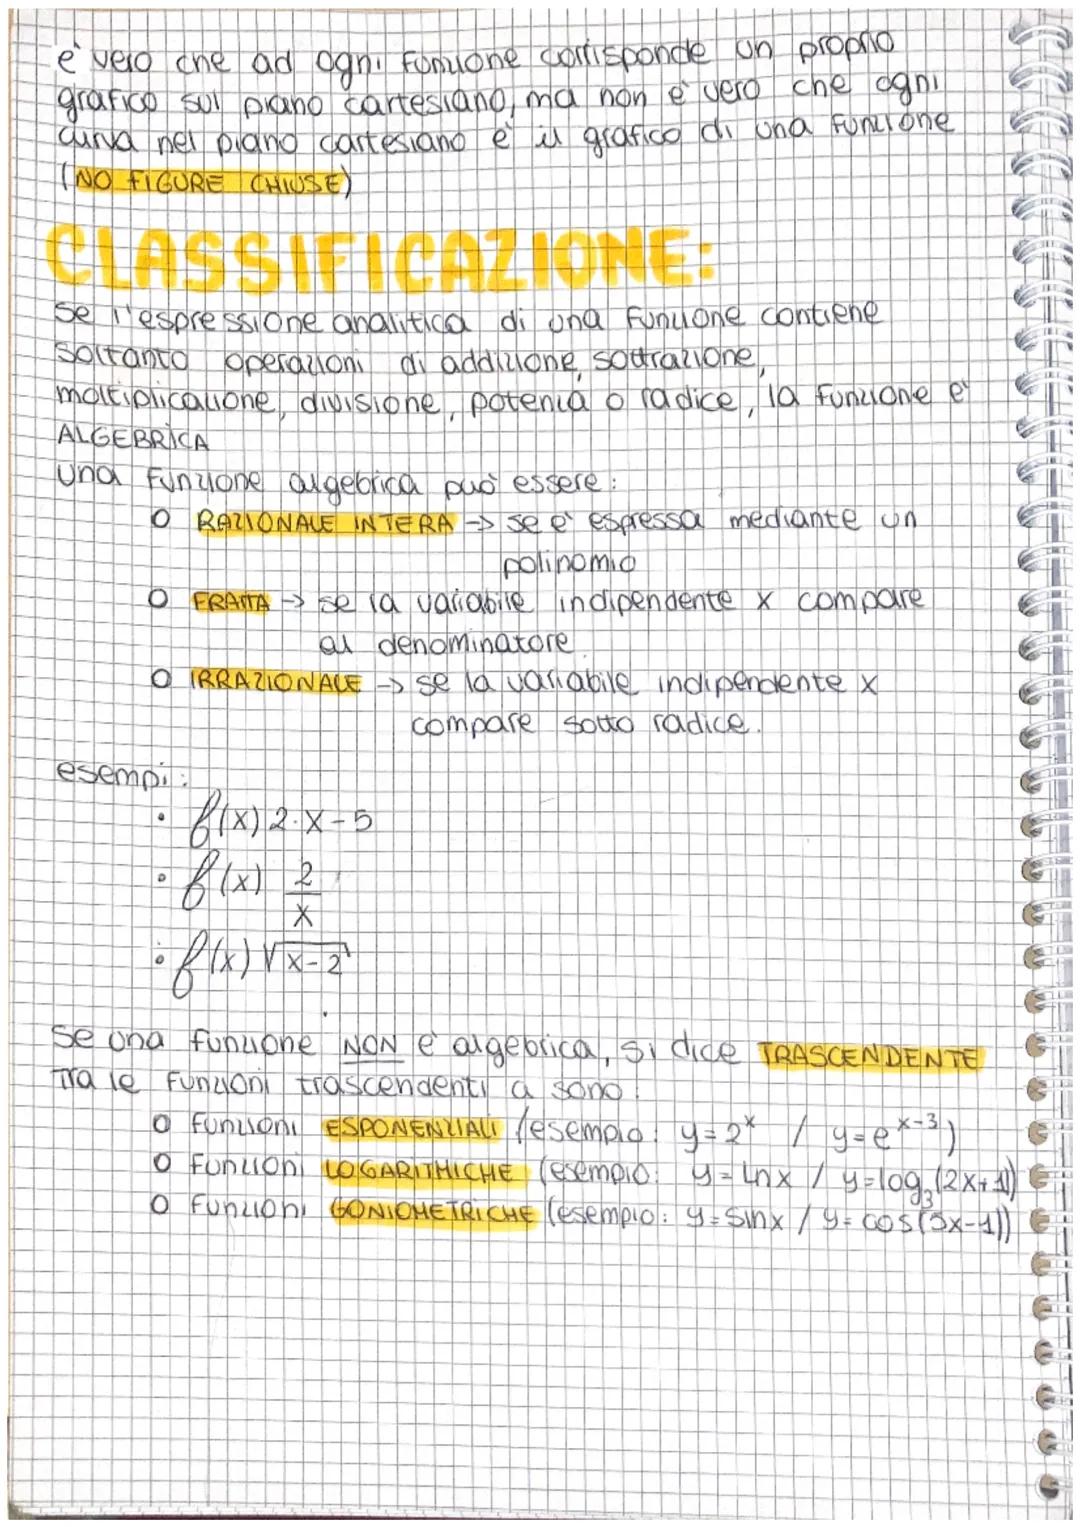 è vero che ad ogni funzione corrisponde un proprio
grafico sul piano cartesiano, ma non è vero che ogni
curva nel piano cartesiano è il grafico di una funzione
(NO FIGURE CHIUSE)
CLASSIFICAZIONE:
se l'espressione analitica di una funzione contiene
soltanto operazioni di addizione, sottrazione,
moltiplicazione, divisione, potenza o radice, la funzione è
ALGEBRICA
una funzione algebrica può essere:
O RAZIONALE INTERA → se è espressa mediante un
polinomio
O FRATTA → se la variabile indipendente x compare
al denominatore.
O IRRAZIONALE → se la variabile indipendente x
compare sotto radice.
esempi:
• f(x) 2·x-5
• f(x) 2/x
• f(x) √x-2
Se una funzione NON è algebrica, si dice TRASCENDENTE
Tra le funzioni trascendenti ci sono:
O funzioni ESPONENZIALI (esempio: y=2^x / y=e^x-3)
O funzioni LOGARITMICHE (esempio: y=lnx / y=log₃(2x+1))
O funzioni GONIOMETRICHE (esempio: y=sinx / y=cos(5x-1))